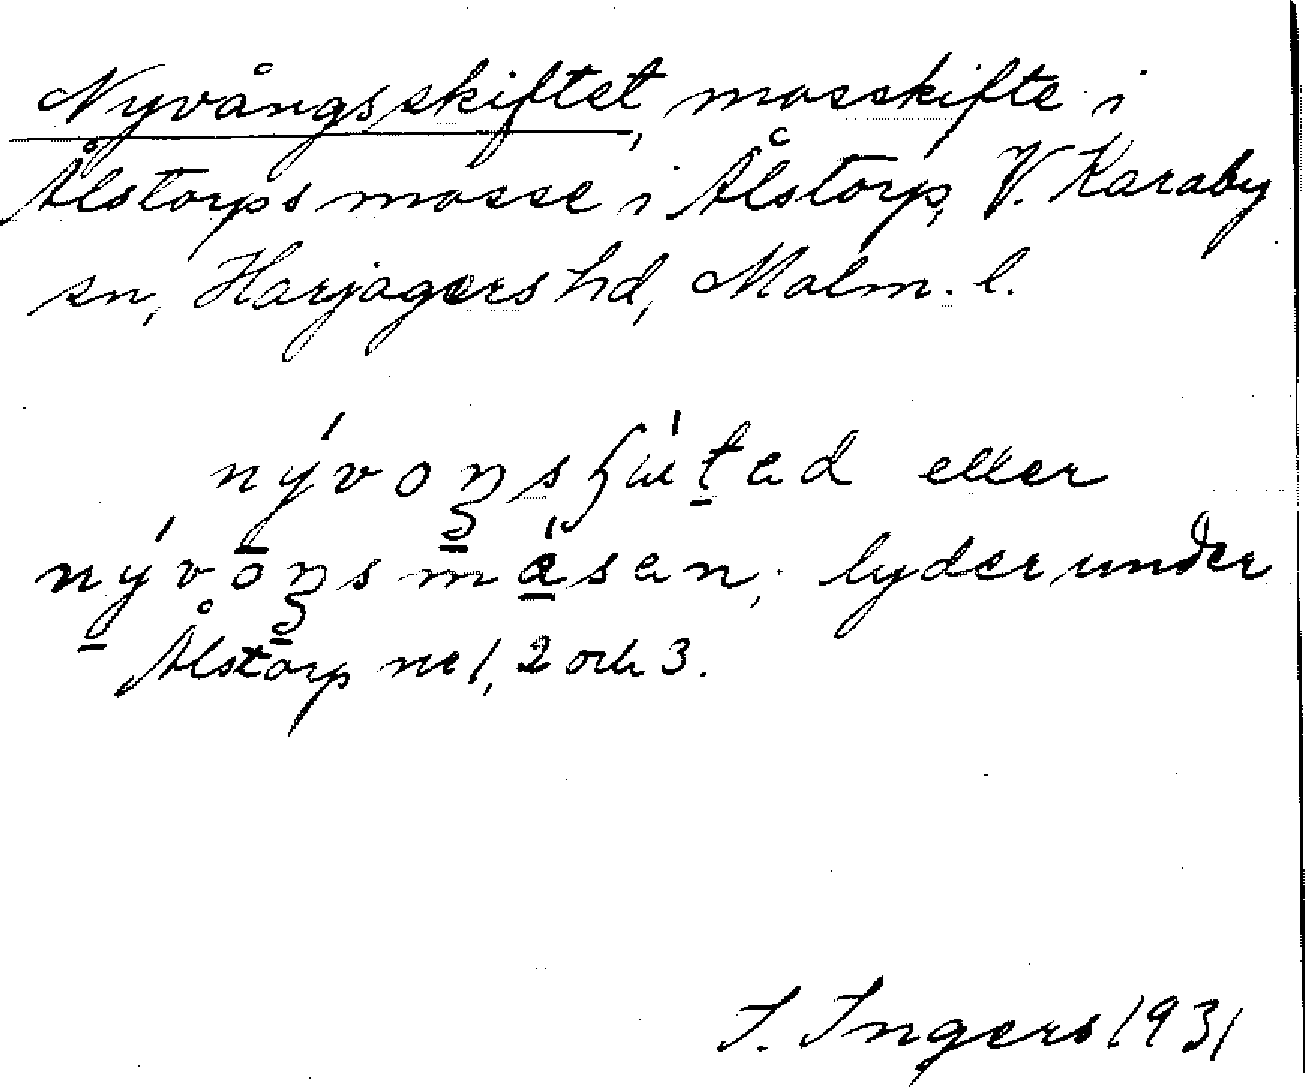 Nyvångsskiftet, mosskifte i
Ålstorps mosse i Ålstorp, V. Karaby
sn, Harjagers hd, Malm. l.
eller
lyder under
Ålstorp nr 1, 2 och 3.
I. Ingers 1931